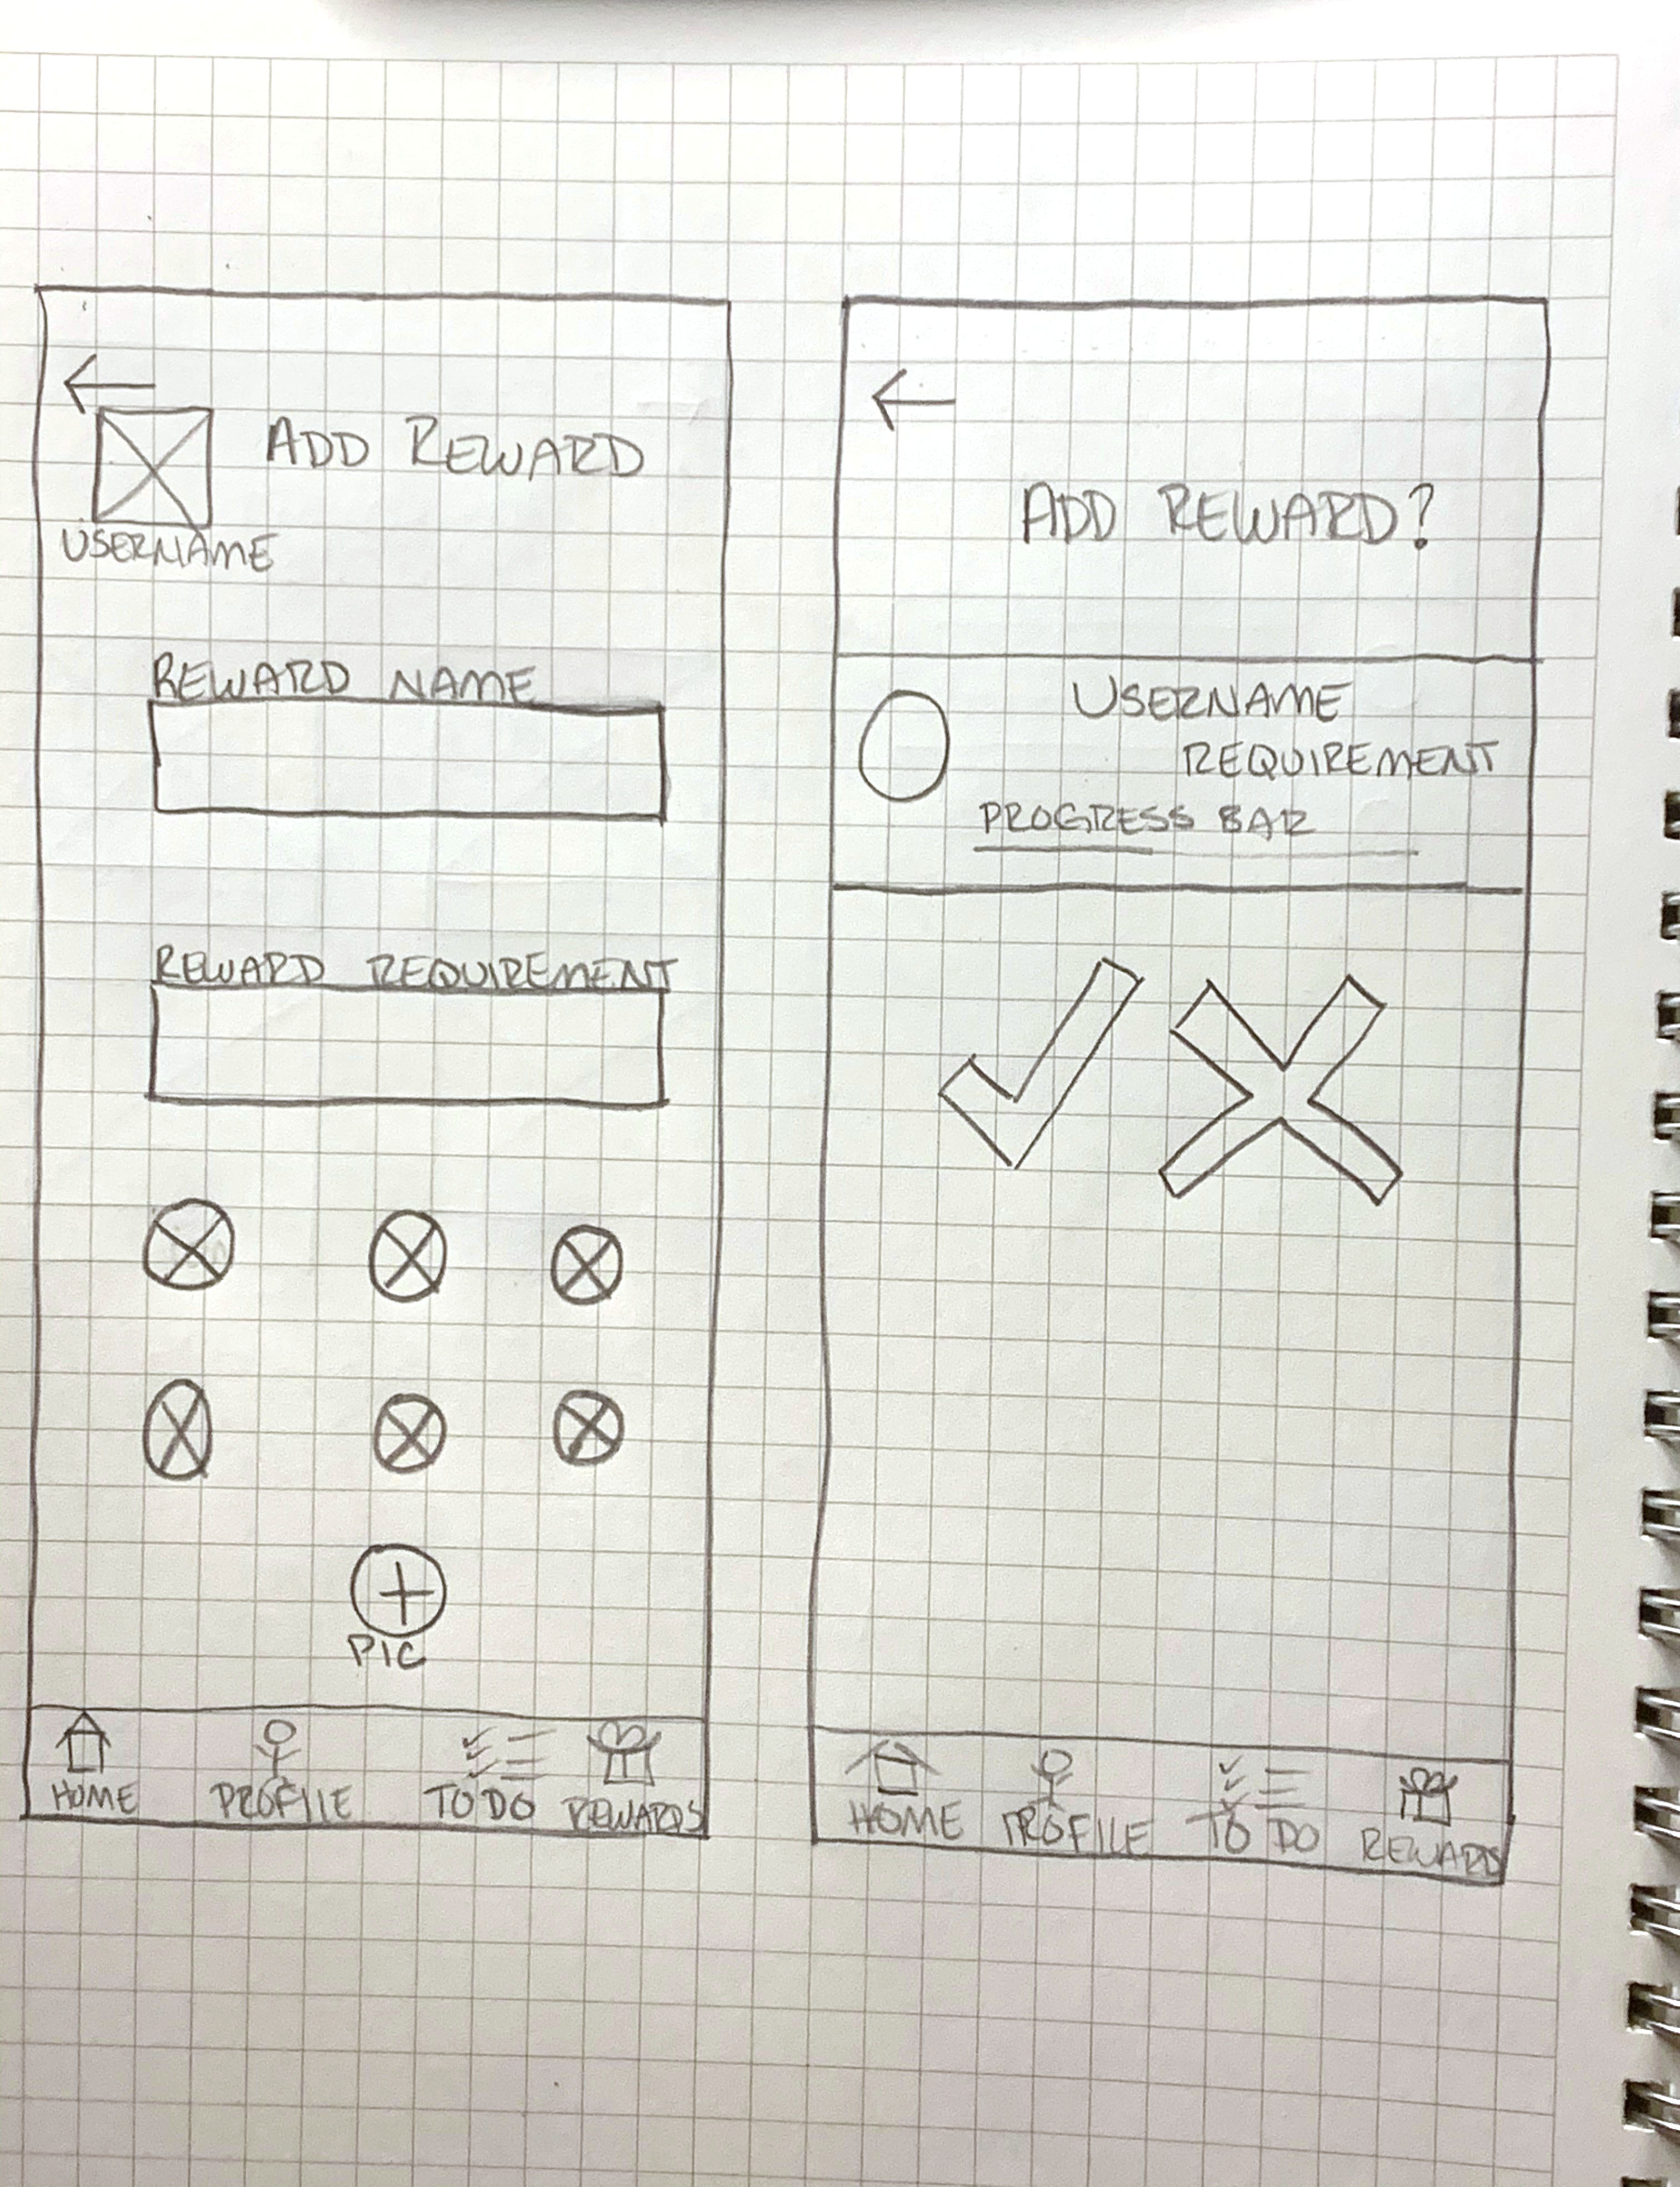 ADD REWARD
USERNAME
REWARD NAME
REWARD REQUIREMENT
PIC
HOME PROFILE TO DO REWARDS
ADD REWARD?
USERNAME
REQUIREMENT
PROGRESS BAR
HOME PROFILE TO DO REWARDS